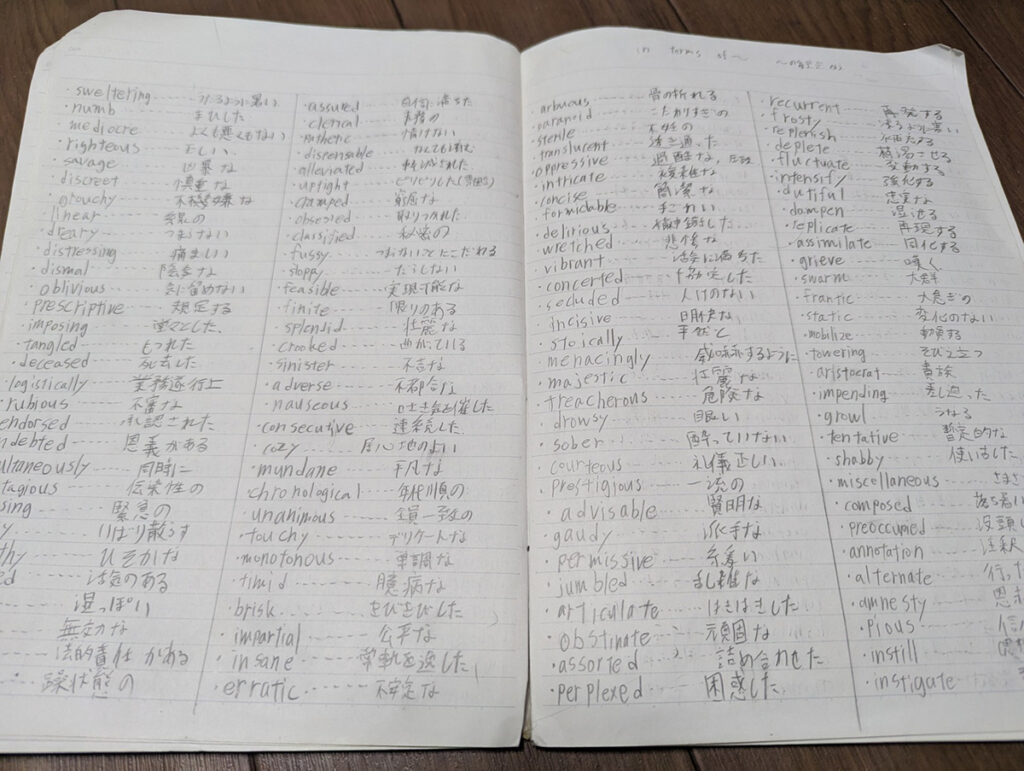 in terms of 〜
〜の観点から
・sweltering ---- うだるように暑い
・numb ---- まひした
・mediocre ---- よくも悪くもない
・righteous ---- 正しい
・savage ---- 凶暴な
・discreet ---- 慎重な
・grouchy ---- 不機嫌な
・linear ---- 線の
・dreary ---- つまらない
・distressing ---- 痛ましい
・dismal ---- 陰気な
・oblivious ---- 気に留めない
・prescriptive ---- 規定する
・imposing ---- 堂々とした
・tangled ---- もつれた
・deceased ---- 死去した
logistically ---- 業務遂行上
rubious ---- 不審な
endorsed ---- 承認された
ndebted ---- 恩義がある
ultaneously ---- 同時に
tagious ---- 伝染性の
sing ---- 緊急の
y ---- いばり散らす
thy ---- ひそかな
ed ---- 活気のある
---- 湿っぽい
---- 無効な
---- 法的責任がある
---- 躁状態の
・assured ---- 自信に満ちた
・clerical ---- 事務の
・pathetic ---- 情けない
・dispensable ---- なくてもよい
・alleviated ---- 軽減された
・uptight ---- ピリピリした
・clamped ---- 窮屈な
・obsessed ---- 取りつかれた
・classified ---- 秘密の
・fussy ---- つまらないことにこだわる
・sloppy ---- だらしない
・feasible ---- 実現可能な
・finite ---- 限りのある
・splendid ---- 壮麗な
・crooked ---- 曲がっている
・sinister ---- 不吉な
・adverse ---- 不都合な
・nauseous ---- 吐き気を催した
・consecutive ---- 連続した
・cozy ---- 居心地のよい
・mundane ---- 平凡な
・chronological ---- 年代順の
・unanimous ---- 全員一致の
・touchy ---- デリケートな
・monotonous ---- 単調な
・timid ---- 臆病な
・brisk ---- きびきびした
・impartial ---- 公平な
・insane ---- 常軌を逸した
・erratic ---- 不安定な
・arbuous ---- 骨の折れる
・paranoid ---- こだわりすぎの
・sterile ---- 不妊の
・translucent ---- 透き通った
・oppressive ---- 過酷な,
・intricate ---- 複雑な
・concise ---- 簡潔な
・formidable ---- 手ごわい
・delirious ---- 精神錯乱した
・wretched ---- 悲惨な
・vibrant ---- 活気に満ちた
・concerted ---- 協定した
・secluded ---- 人けのない
・incisive ---- 明快な
・stoically ---- 平然と
・menacingly ---- 威嚇するように
・majestic ---- 壮麗な
・treacherous ---- 危険な
・drowsy ---- 眠い
・sober ---- 酔っていない
・courteous ---- 礼儀正しい
・prestigious ---- 一流の
・advisable ---- 賢明な
・gaudy ---- 派手な
・permissive ---- 緩い
・jumbled ---- 乱雑な
・articulate ---- はきはきした
・obstinate ---- 頑固な
・assorted ---- 詰め合わせた
・perplexed ---- 困惑した
・recurrent ---- 再発する
・frosty ---- 凍るように寒い
・replenish ---- 補充する
・deplete ---- 枯渇させる
・fluctuate ---- 変動する
・intensify ---- 強化する
・dutiful ---- 忠実な
・dampen ---- 湿る
・replicate ---- 再現する
・assimilate ---- 同化する
・grieve ---- 嘆く
・swarm ---- 大群
・frantic ---- 大急ぎの
・static ---- 変化のない
・mobilize ---- 動員する
・towering ---- そびえ立つ
・aristocrat ---- 貴族
・impending ---- 差し迫った
・growl ---- うなる
・tentative ---- 暫定的な
・shabby ---- 使い古した
・miscellaneous ---- さまざ
・composed ---- 落ち着い
・preoccupied ---- 没頭
・annotation ---- 注釈
・alternate ---- 行った
・amnesty ---- 恩赦
・pious ---- 信
・instill
・instigate